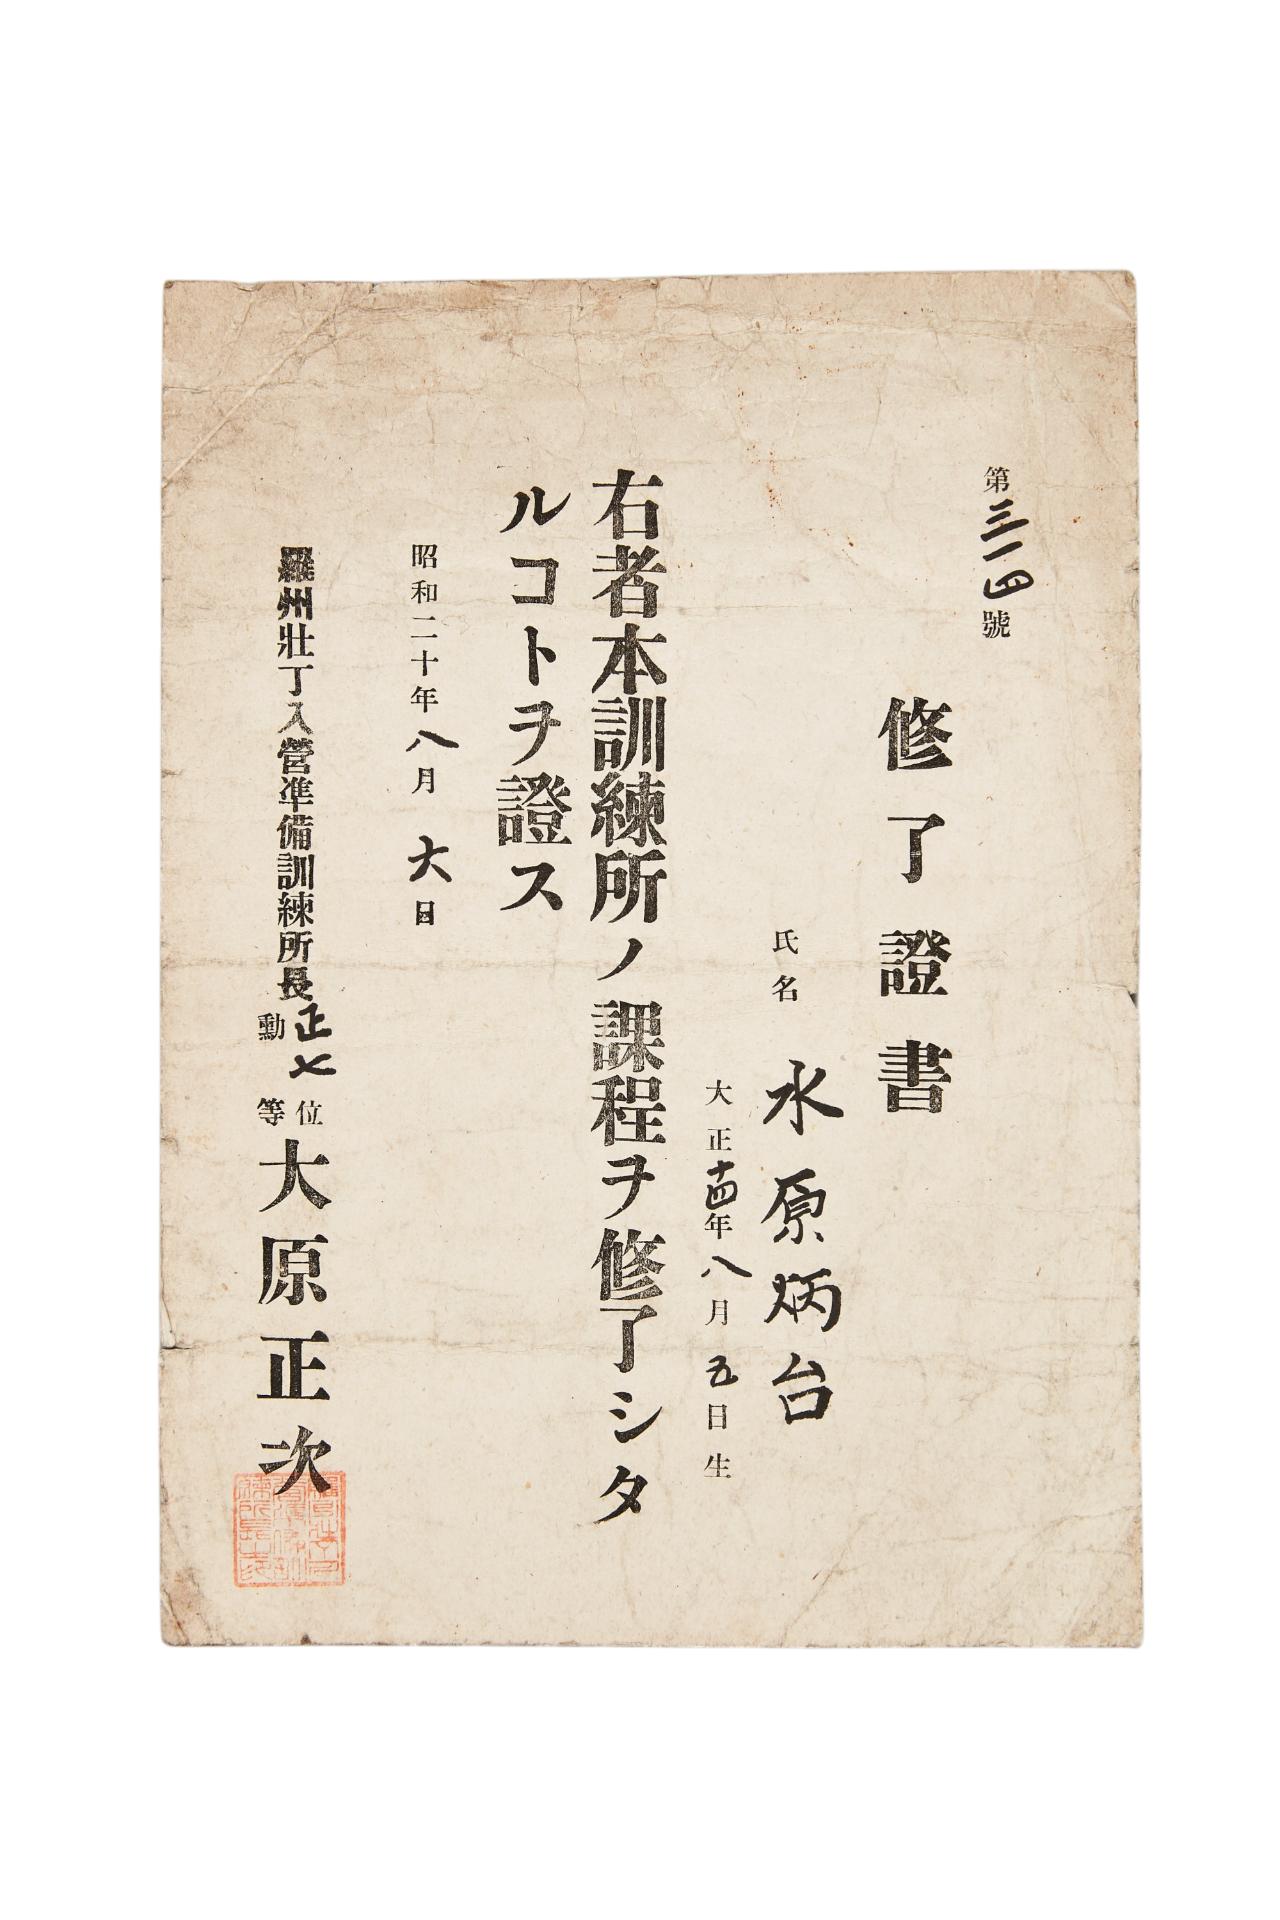 第三一四號
修了證書
氏名 水原炳台
大正十四年八月五日生
右者本訓練所ノ課程ヲ修了シタ
ルコトヲ證ス
昭和二十年八月六日
羅州壯丁入營準備訓練所長 正七位 勳 等 大原正次